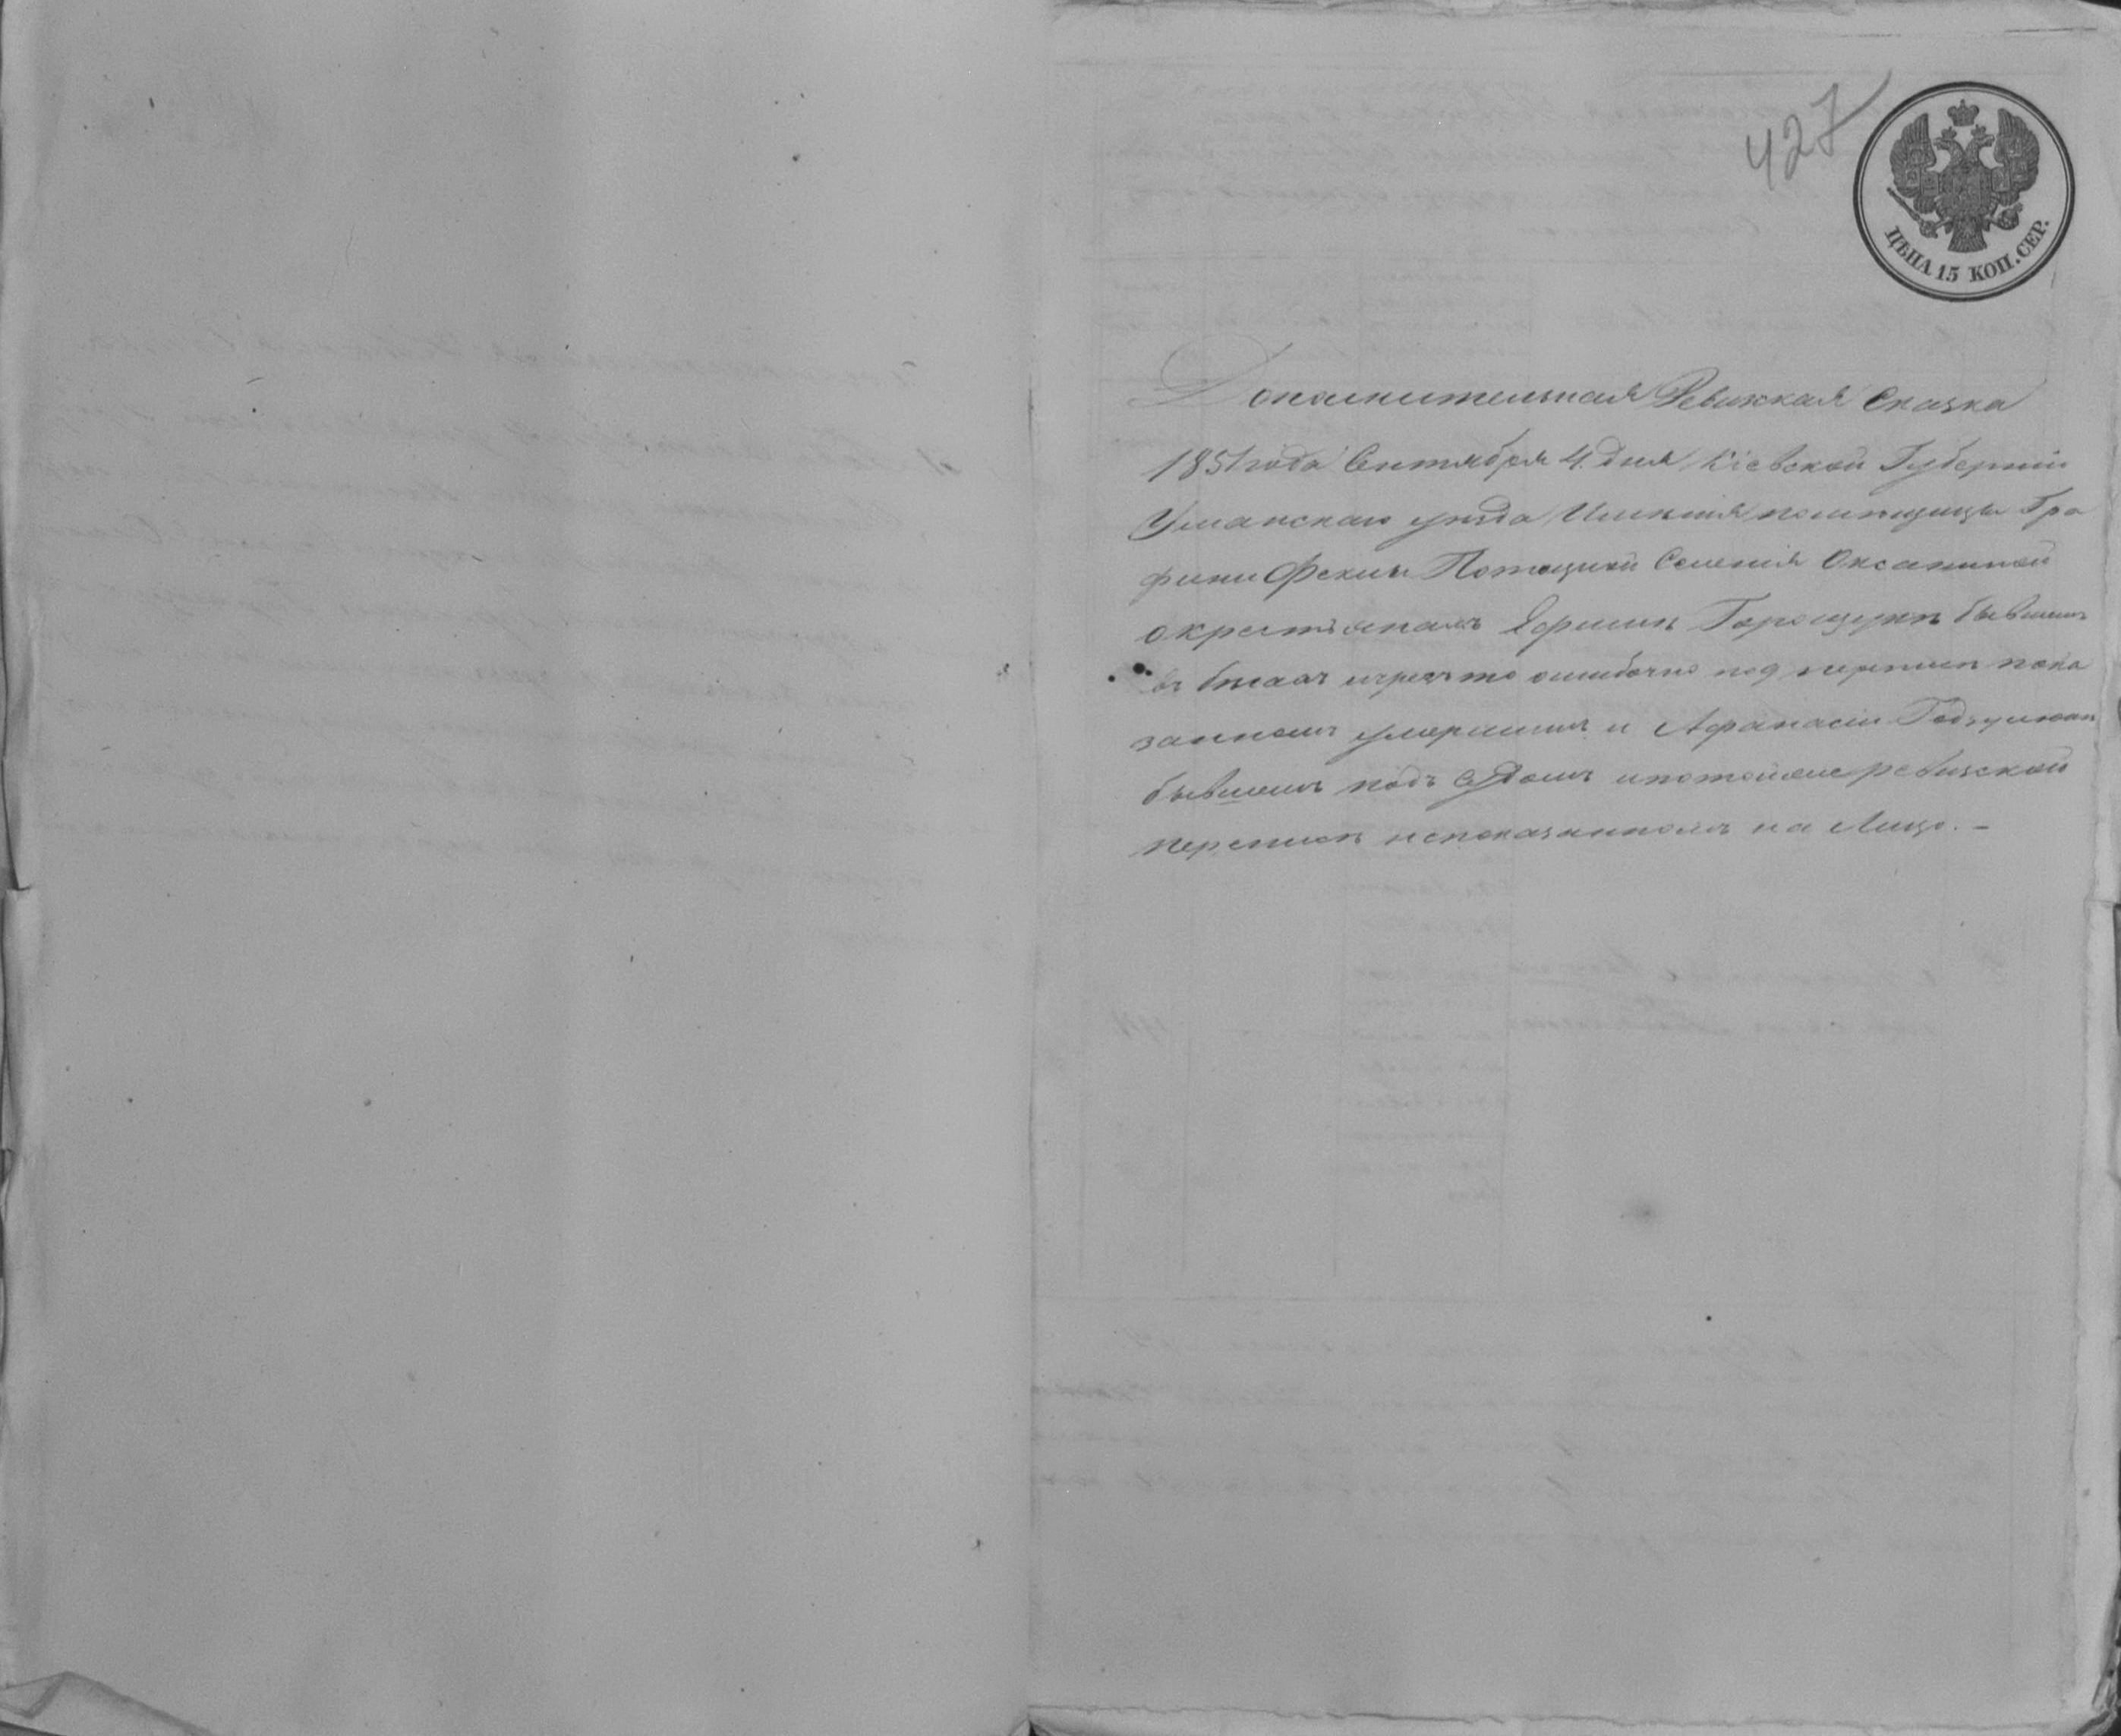 427
ЦѢНА 15 КОП. СЕР.
Дополнительная Ревижкая Сказка
1851 года Сентября 4. дня Кіевской Губерніи
Уманскаго уѣзда Имѣнія помѣщицы Гра
фини Феклы Потоцкой Селенія Оксаниной
о крестьянахъ Ефимѣ Горощукѣ бывшемъ
въ бѣгахъ и чрезъ то ошибочно по 9 переписи пока
заннымъ умершимъ и Афанасіи
бывшемъ подъ Судомъ и по той же ревизской
переписи непоказанномъ на Лицо. –